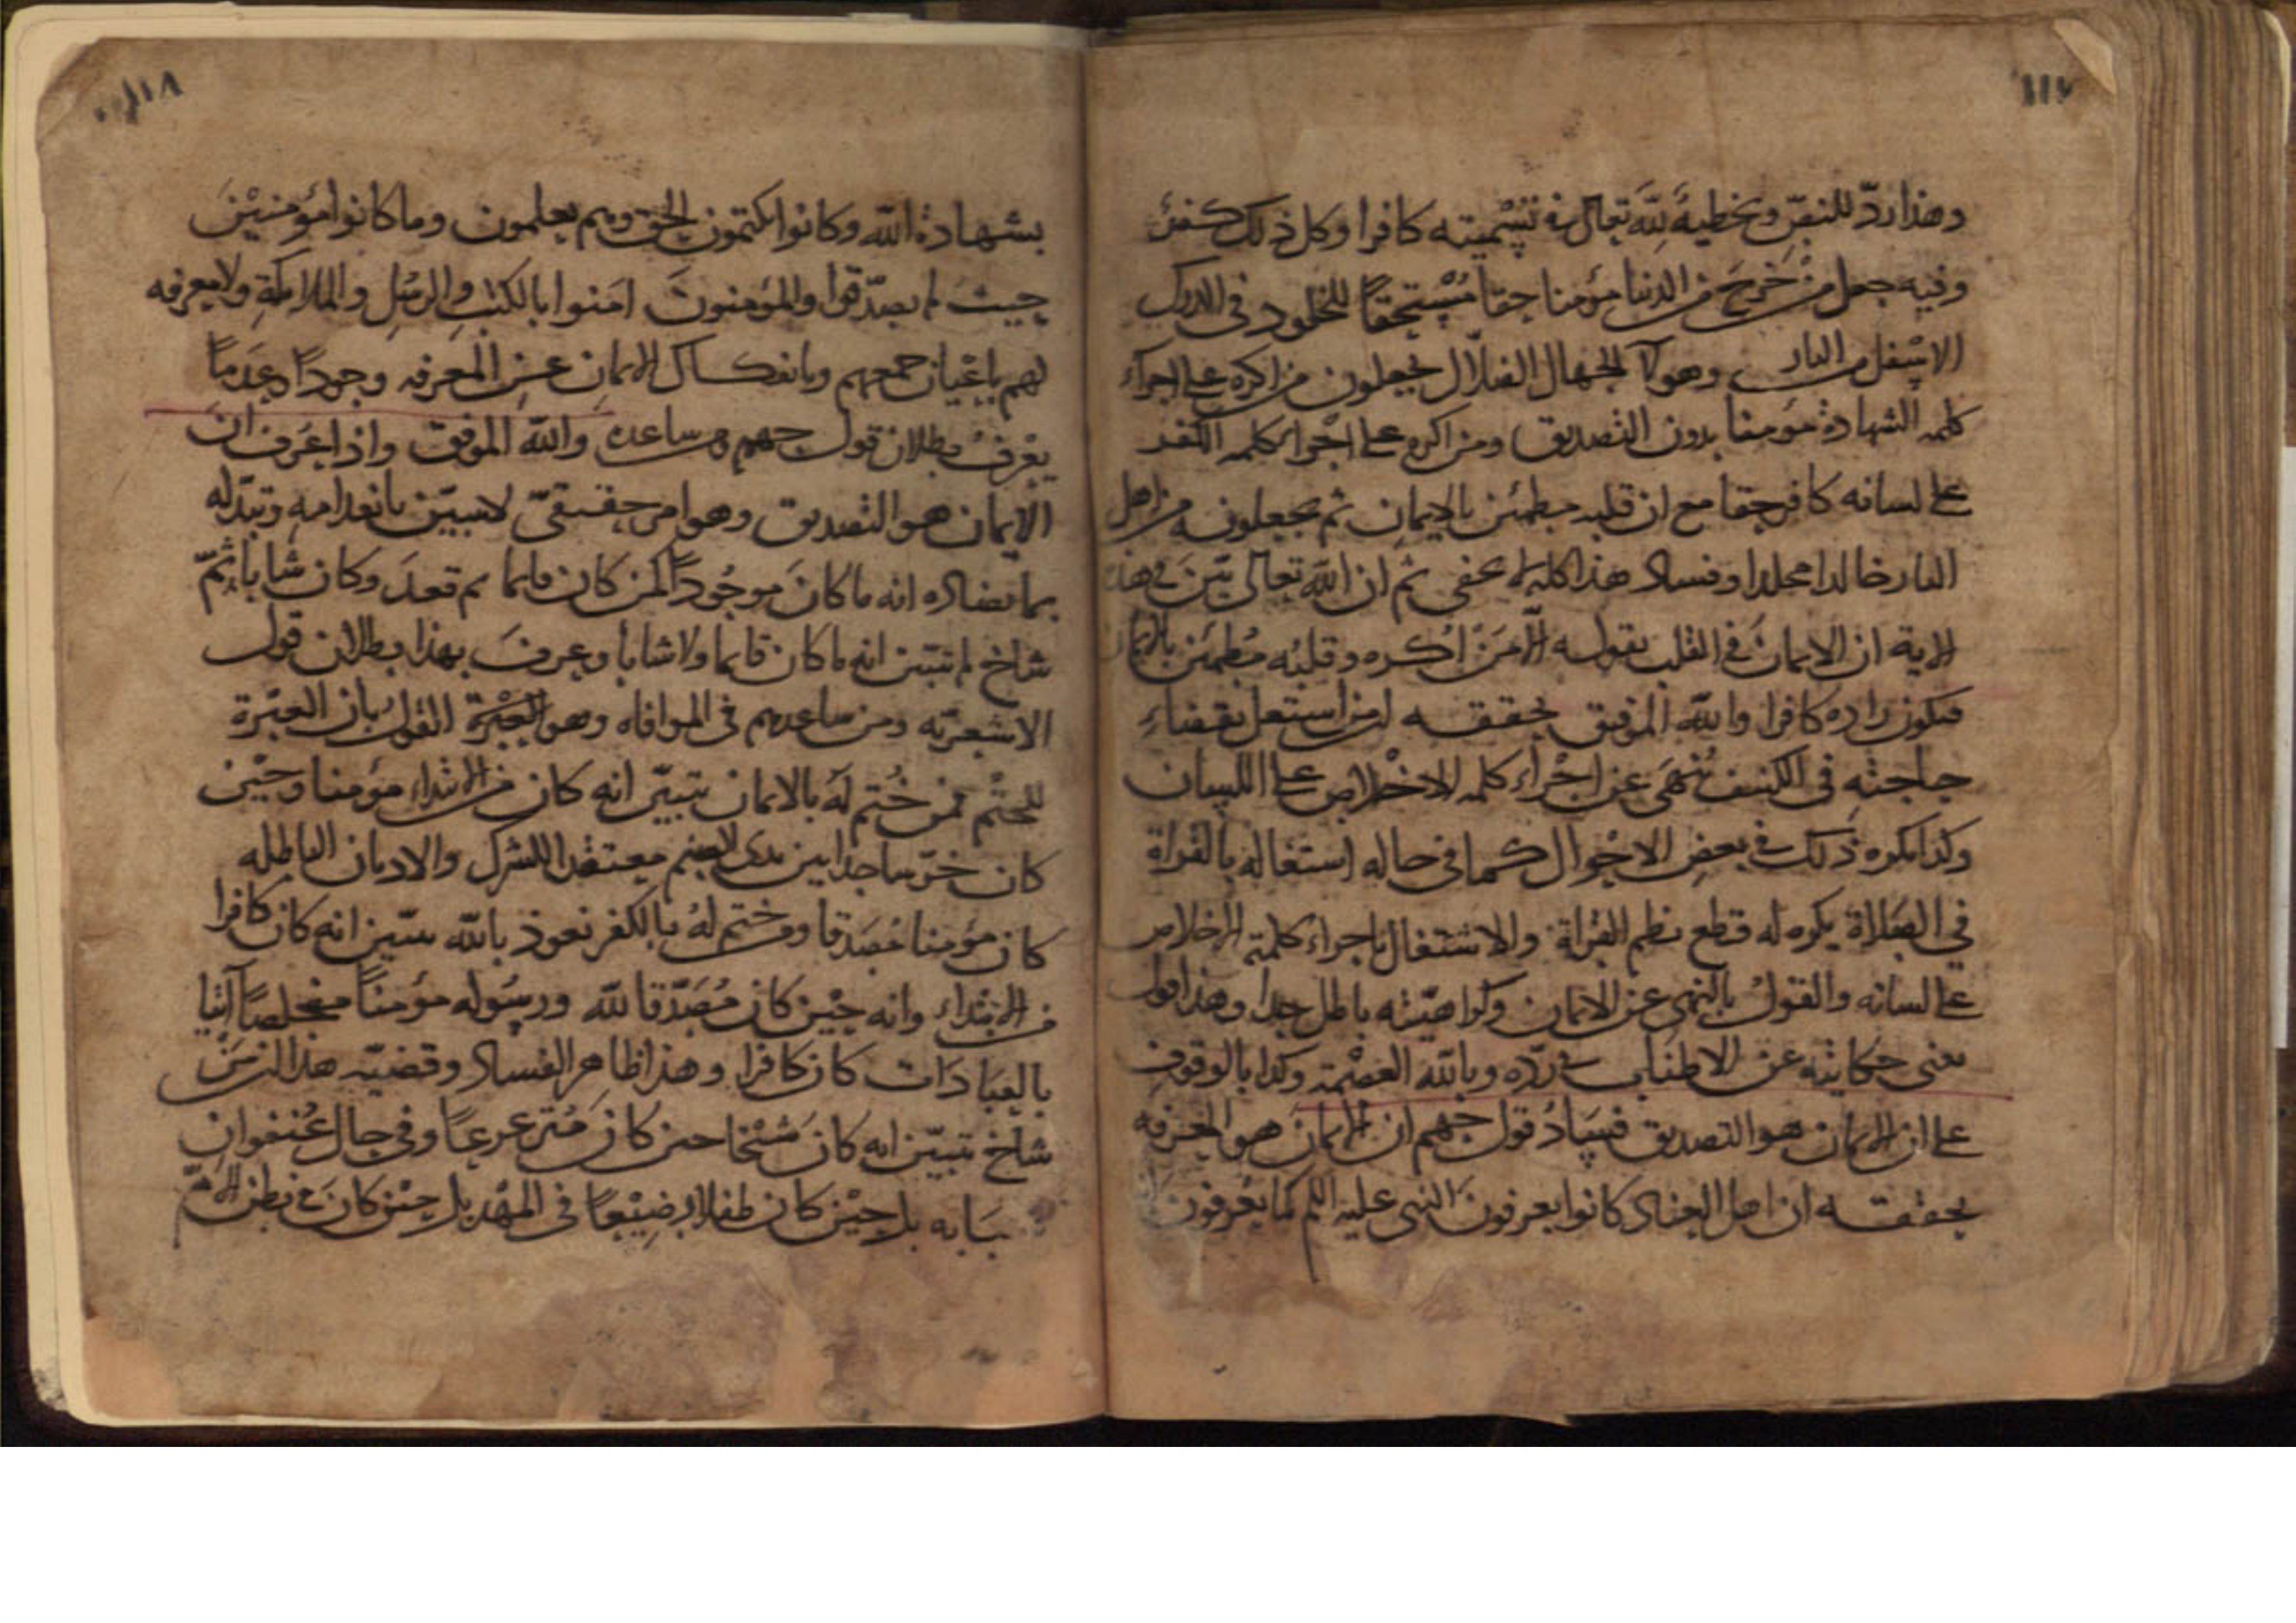 ١١٧
وهذا ردّ للنصّ وتخطيةٌ لله تعالى في تسميته كافرا وكل ذلك كفرٌ
وفيه جعل من خرج من الدنيا مؤمنا حقا مستحقا للخلود في الدرك
الاسفل من النار وهولاء الجهال الضلال يجعلون من اكره على اجراء
كلمه الشهادة مؤمنا بدون التصديق ومن اكره على اجراء كلمه الكفر
على لسانه كافر حقا مع ان قلبه مطمئن بالايمان ثم يجعلونه من اهل
النار خالدا مخلدا وفساد هذا كله لا يخفى ثم ان الله تعالى بيّن في هذه
الاية ان الايمان في القلب بقوله الا من اكره وقلبه مطمئن بالايمان
فيكون راده كافرا والله الموفق يحققه ان من استعل بقضاء
حاجته في الكنيف نهى عن اجراء كلمه الاخلاص على اللسان
وكذا يكره ذلك في بعض الاحوال كما في حاله استغاله بالقراة
في الصلاة يكره له قطع نظم القراة والاشتغال باجراء كلمة الاخلاص
على لسانه والقول بالنهي عن الايمان وكراهيته باطل جدا وهذا قول
يغني حكايته عن الاطناب في ردّه وبالله العصمة وكذا بالوقوف
على ان الايمان هو التصديق فساد قول جهم ان الايمان هو المعرفه
يحققه ان اهل العناد كانوا يعرفون النبي عليه السلم كما يعرفون
١١٨
بشهادة الله وكانوا يكتمون الحق وهم يعلمون وما كانوا مؤمنين
حيث لم يصدّقوا والمؤمنون امنوا بالكتب والرسل والملائكة ولا معرفه
لهم باعيان جميعهم وبانفكاك الايمان عن المعرفه وجودا وعدما
يعرف بطلان قول جهم ومن ساعده والله الموفق واذا عرف ان
الايمان هو التصديق وهو امر حقيقيّ لا يتبيّن بانعدامه وتبدّله
بما يضاده انه ما كان موجوداً كمن كان قايما ثم قعد وكان شابا ثمّ
شاخ لم يتبين انه ما كان قايما ولا شابا وعرف بهذا بطلان قول
الاشعريه ومن ساعدهم في الموافاه وهو القول بان العبرة
للختم فمن ختم له بالايمان تبيّن انه كان من الابتداء مؤمنا وحين
كان خرّ ساجدا بين يدي الصنم معتقدا للشرك والاديان الباطله
كان مؤمنا مصدقا ومن ختم له بالكفر نعوذ بالله تبيّن انه كان كافرا
من الابتداء وانه حين كان مصدّقا لله ورسوله مؤمنا مخلصا آتيا
بالعبادات كان كافرا وهذا ظاهر الفساد وقضيّه هذا ان من
شاخ تبيّن انه كان شيخا حين كان مترعرعا وفي حال عنفوان
شبابه بل حين كان طفلا رضيعا في المهد بل حين كان في بطن الام